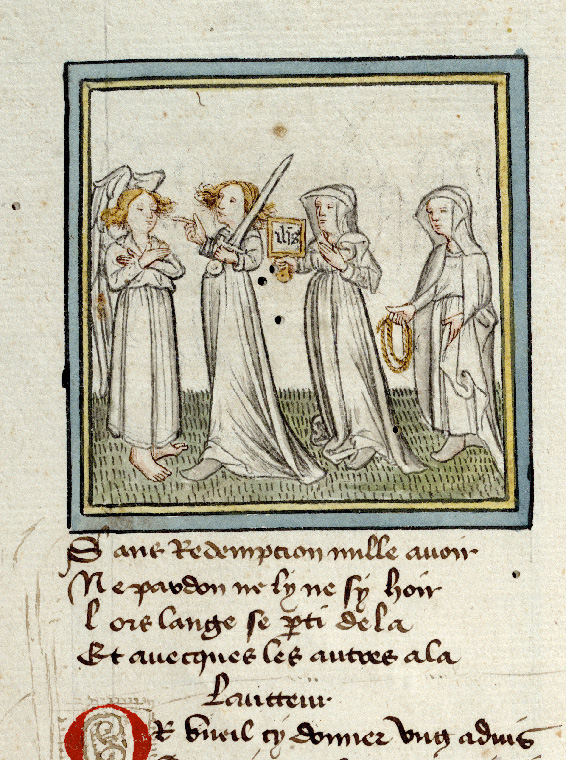 ihs
Sans Redempcion nulle avoir
Ne pardon ne ly ne sy hoir
Lors lange se pti de la
Et avecques les autres ala
Laucteur
OR vueil cy donner ung advis